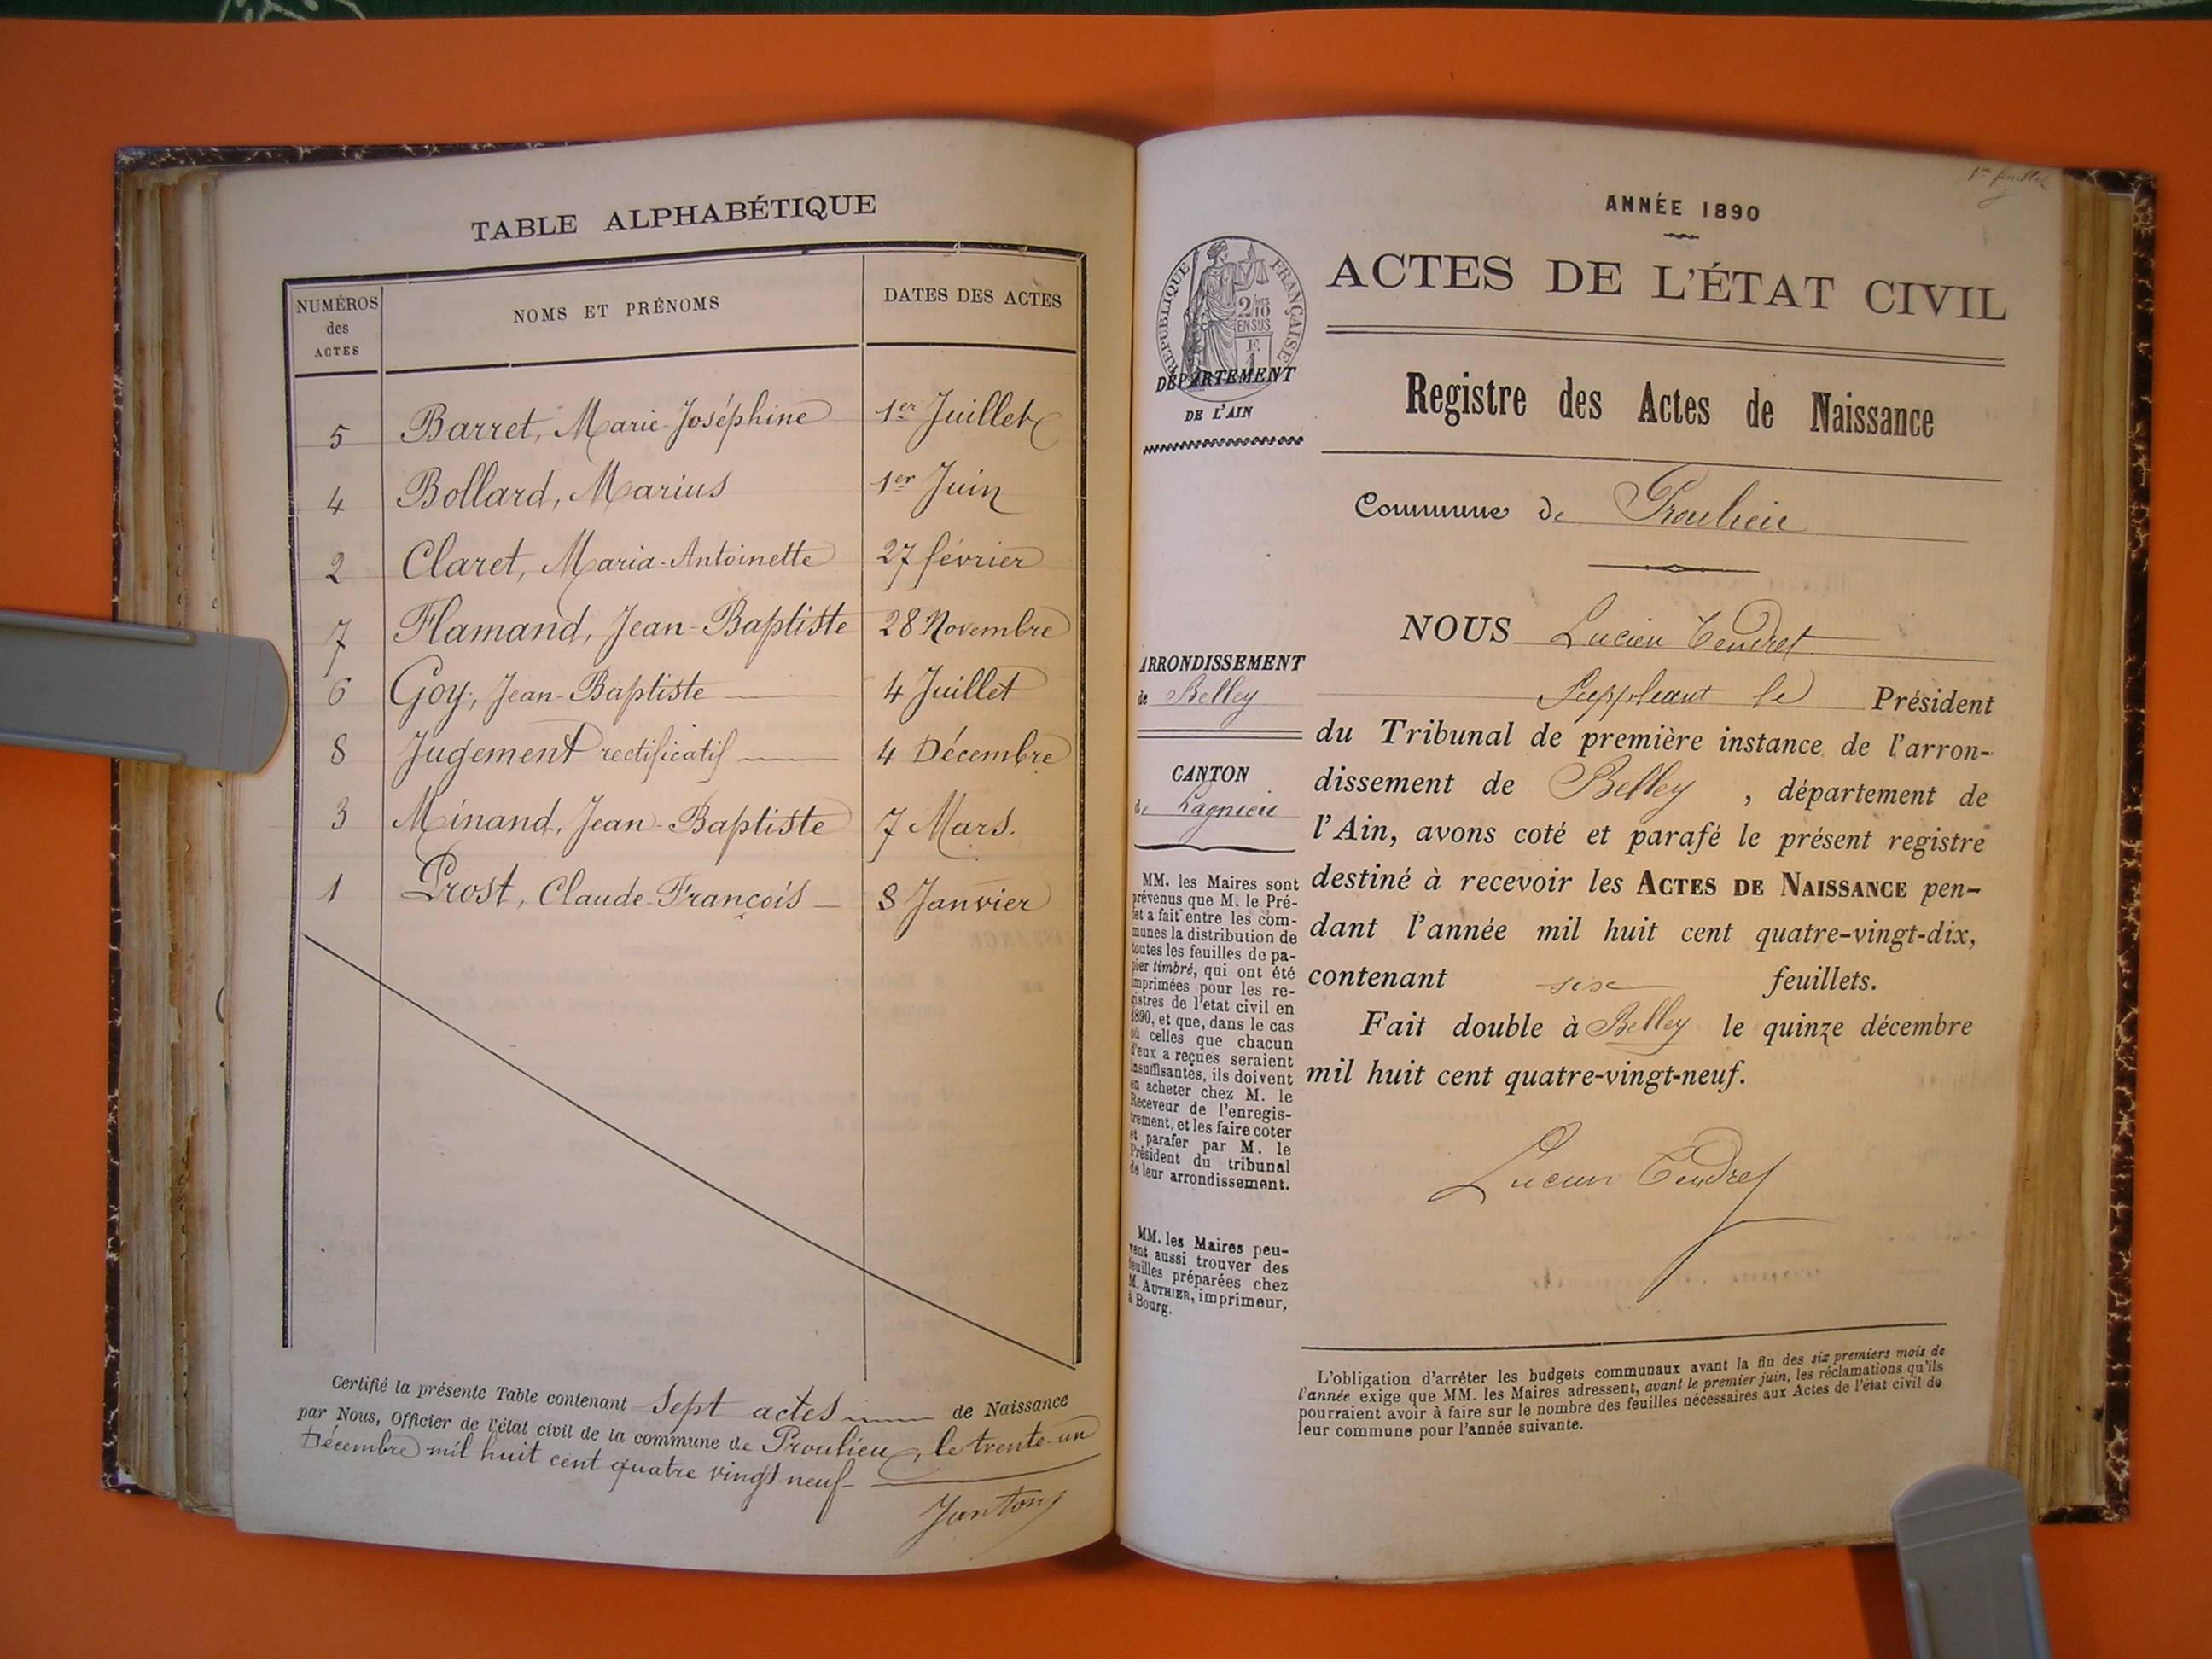 TABLE ALPHABÉTIQUE
NUMÉROS des ACTES
NOMS ET PRÉNOMS
DATES DES ACTES
5 Barret, Marie Joséphine 1er Juillet
4 Bollard, Marius 1er Juin
2 Claret, Maria-Antoinette 27 février
7 Flamand, Jean-Baptiste 28 Novembre
6 Goy, Jean-Baptiste 4 Juillet
8 Jugement rectificatif 4 Décembre
3 Minand, Jean-Baptiste 7 Mars.
1 Prost, Claude-François 8 Janvier
Certifié la présente Table contenant Sept actes de Naissance
par Nous, Officier de l'état civil de la commune de Proulieu, le trente-un
Décembre mil huit cent quatre vingt neuf
Jantony
1er feuillet
ANNÉE 1890
ACTES DE L'ÉTAT CIVIL
RÉPUBLIQUE FRANÇAISE
2/10
EN SUS
F.
1
DÉPARTEMENT
DE L'AIN
Registre des Actes de Naissance
Commune de Proulieu
NOUS Lucien Tendret
Suppléant le Président
du Tribunal de première instance de l'arron-
dissement de Belley, département de
l'Ain, avons coté et parafé le présent registre
destiné à recevoir les ACTES DE NAISSANCE pen-
dant l'année mil huit cent quatre-vingt-dix,
contenant six feuillets.
Fait double à Belley le quinze décembre
mil huit cent quatre-vingt-neuf.
Lucien Tendret
ARRONDISSEMENT
de Belley
CANTON
de Lagnieu
MM. les Maires sont
prévenus que M. le Pré-
fet a fait entre les com-
munes la distribution de
toutes les feuilles de pa-
pier timbré, qui ont été
imprimées pour les re-
gistres de l'etat civil en
1890, et que, dans le cas
où celles que chacun
d'eux a reçues seraient
insuffisantes, ils doivent
en acheter chez M. le
Receveur de l'enregis-
trement, et les faire coter
et parafer par M. le
Président du tribunal
de leur arrondissement.
MM. les Maires peu-
vent aussi trouver des
feuilles préparées chez
M. AUTHIER, imprimeur,
à Bourg.
L'obligation d'arrêter les budgets communaux avant la fin des six premiers mois de
l'année exige que MM. les Maires adressent, avant le premier juin, les réclamations qu'ils
pourraient avoir à faire sur le nombre des feuilles nécessaires aux Actes de l'état civil de
leur commune pour l'année suivante.